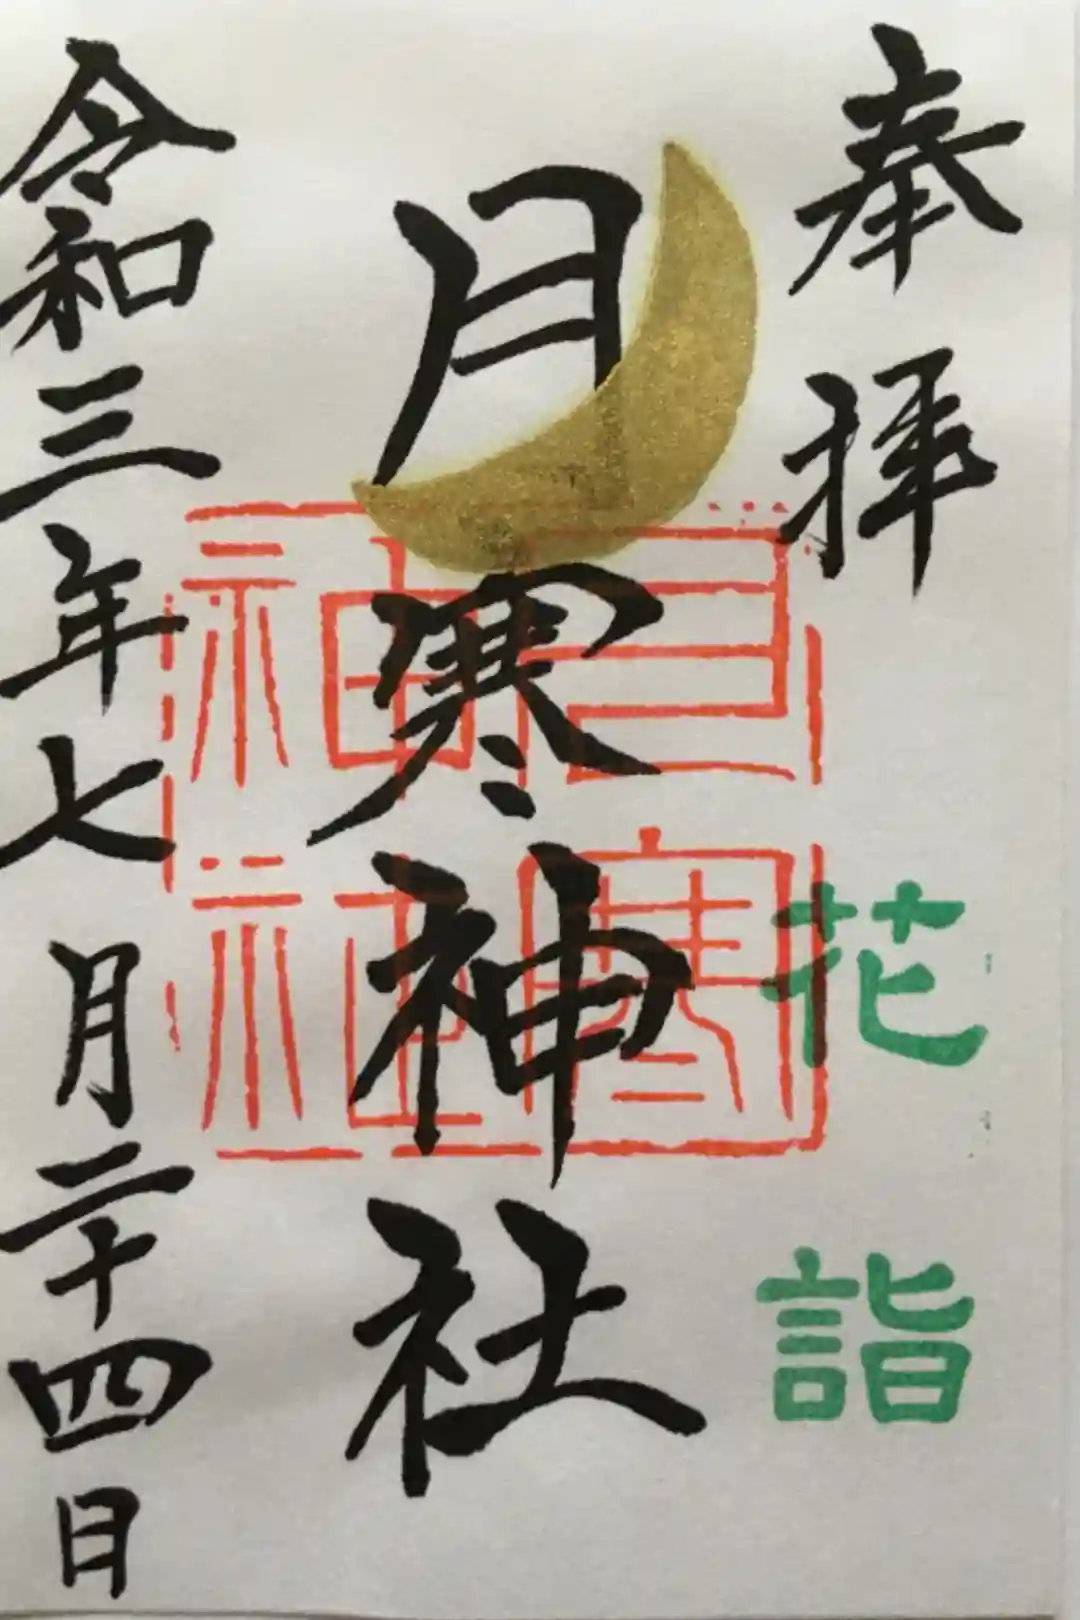 奉拝
花詣
月寒神社
月寒
神社
令和三年七月二十四日